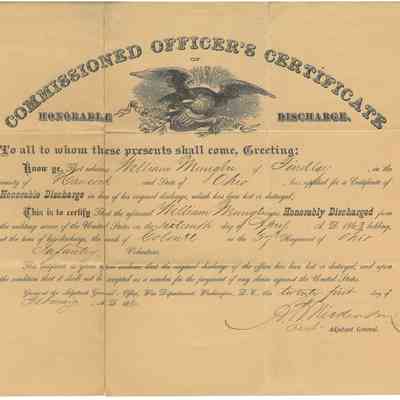 COMMISSIONED OFFICER'S CERTIFICATE
OF
HONORABLE DISCHARGE.
To all to whom these presents shall come, Greeting:
Know ye, That whereas William Mungen of Findlay, in the
county of Hancock and State of Ohio, has applied for a Certificate of
Honorable Discharge in lieu of his original discharge, which has been lost or destroyed,
This is to certify That the aforesaid William Mungen was Honorably Discharged from
the military service of the United States on the sixteenth day of April A.D. 1863, holding,
at the time of his discharge, the rank of Colonel in the 57th Regiment of Ohio
Infantry Volunteers.
This certificate is given upon evidence that the original discharge of the officer has been lost or destroyed, and upon
the condition that it shall not be accepted as a voucher for the payment of any claim against the United States.
Given at the Adjutant General's Office, War Department, Washington, D. C., this twenty first day of
February, A.D. 18
Adjutant General.